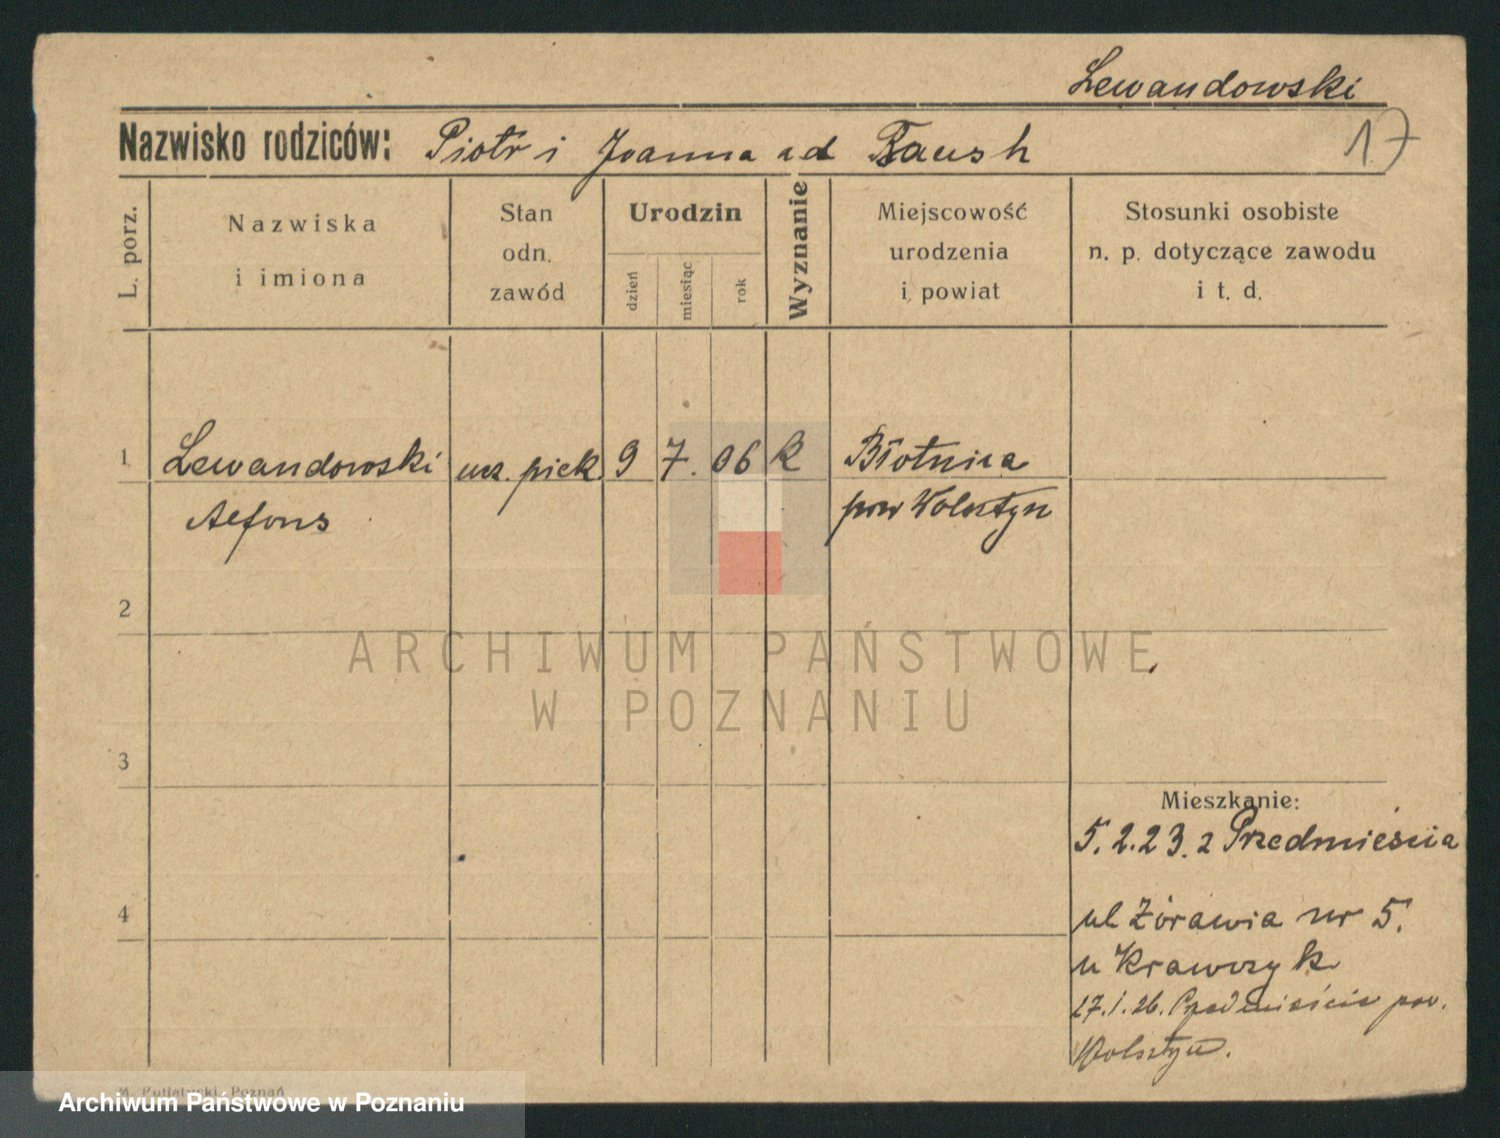 Lewandowski
17
Nazwisko rodziców: Piotr i Joanna
L. porz.
Nazwiska
i imiona
Stan
odn.
zawód
Urodzin
dzień
miesiąc
rok
Wyznanie
Miejscowość
urodzenia
i powiat
Stosunki osobiste
n. p. dotyczące zawodu
i t. d.
1 Lewandowski ucz. piek. 9 7. 06 k Błotnica
Alfons pow Wolsztyn
2
ARCHIWUM PAŃSTWOWE
W POZNANIU
3
Mieszkanie:
5.2.23. z Przedmieścia
4
ul Żórawia nr 5.
u Krawczyk
27.1.26. Przedmieście pow.
Wolsztyn.
M. Putiatycki, Poznań
Archiwum Państwowe w Poznaniu